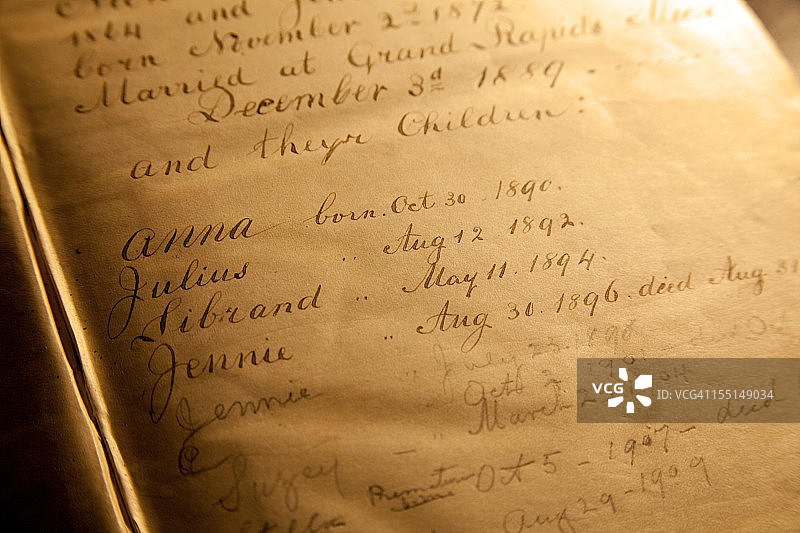 1864 and
born November 2d 1872.
Married at Grand Rapids Mich
December 3d 1889.
and theyr Children:
Anna born. Oct 30 1890.
Julius " Aug 12 1892.
Sibrand " May 11. 1894.
Jennie " Aug 30. 1896. died Aug 31
Jennie " July 23. 1898
Oct
March 2
Suzey - Oct 5 - 1907 - died
Premature
Aug 29 - 1909
VCG
ID: VCG41155149034